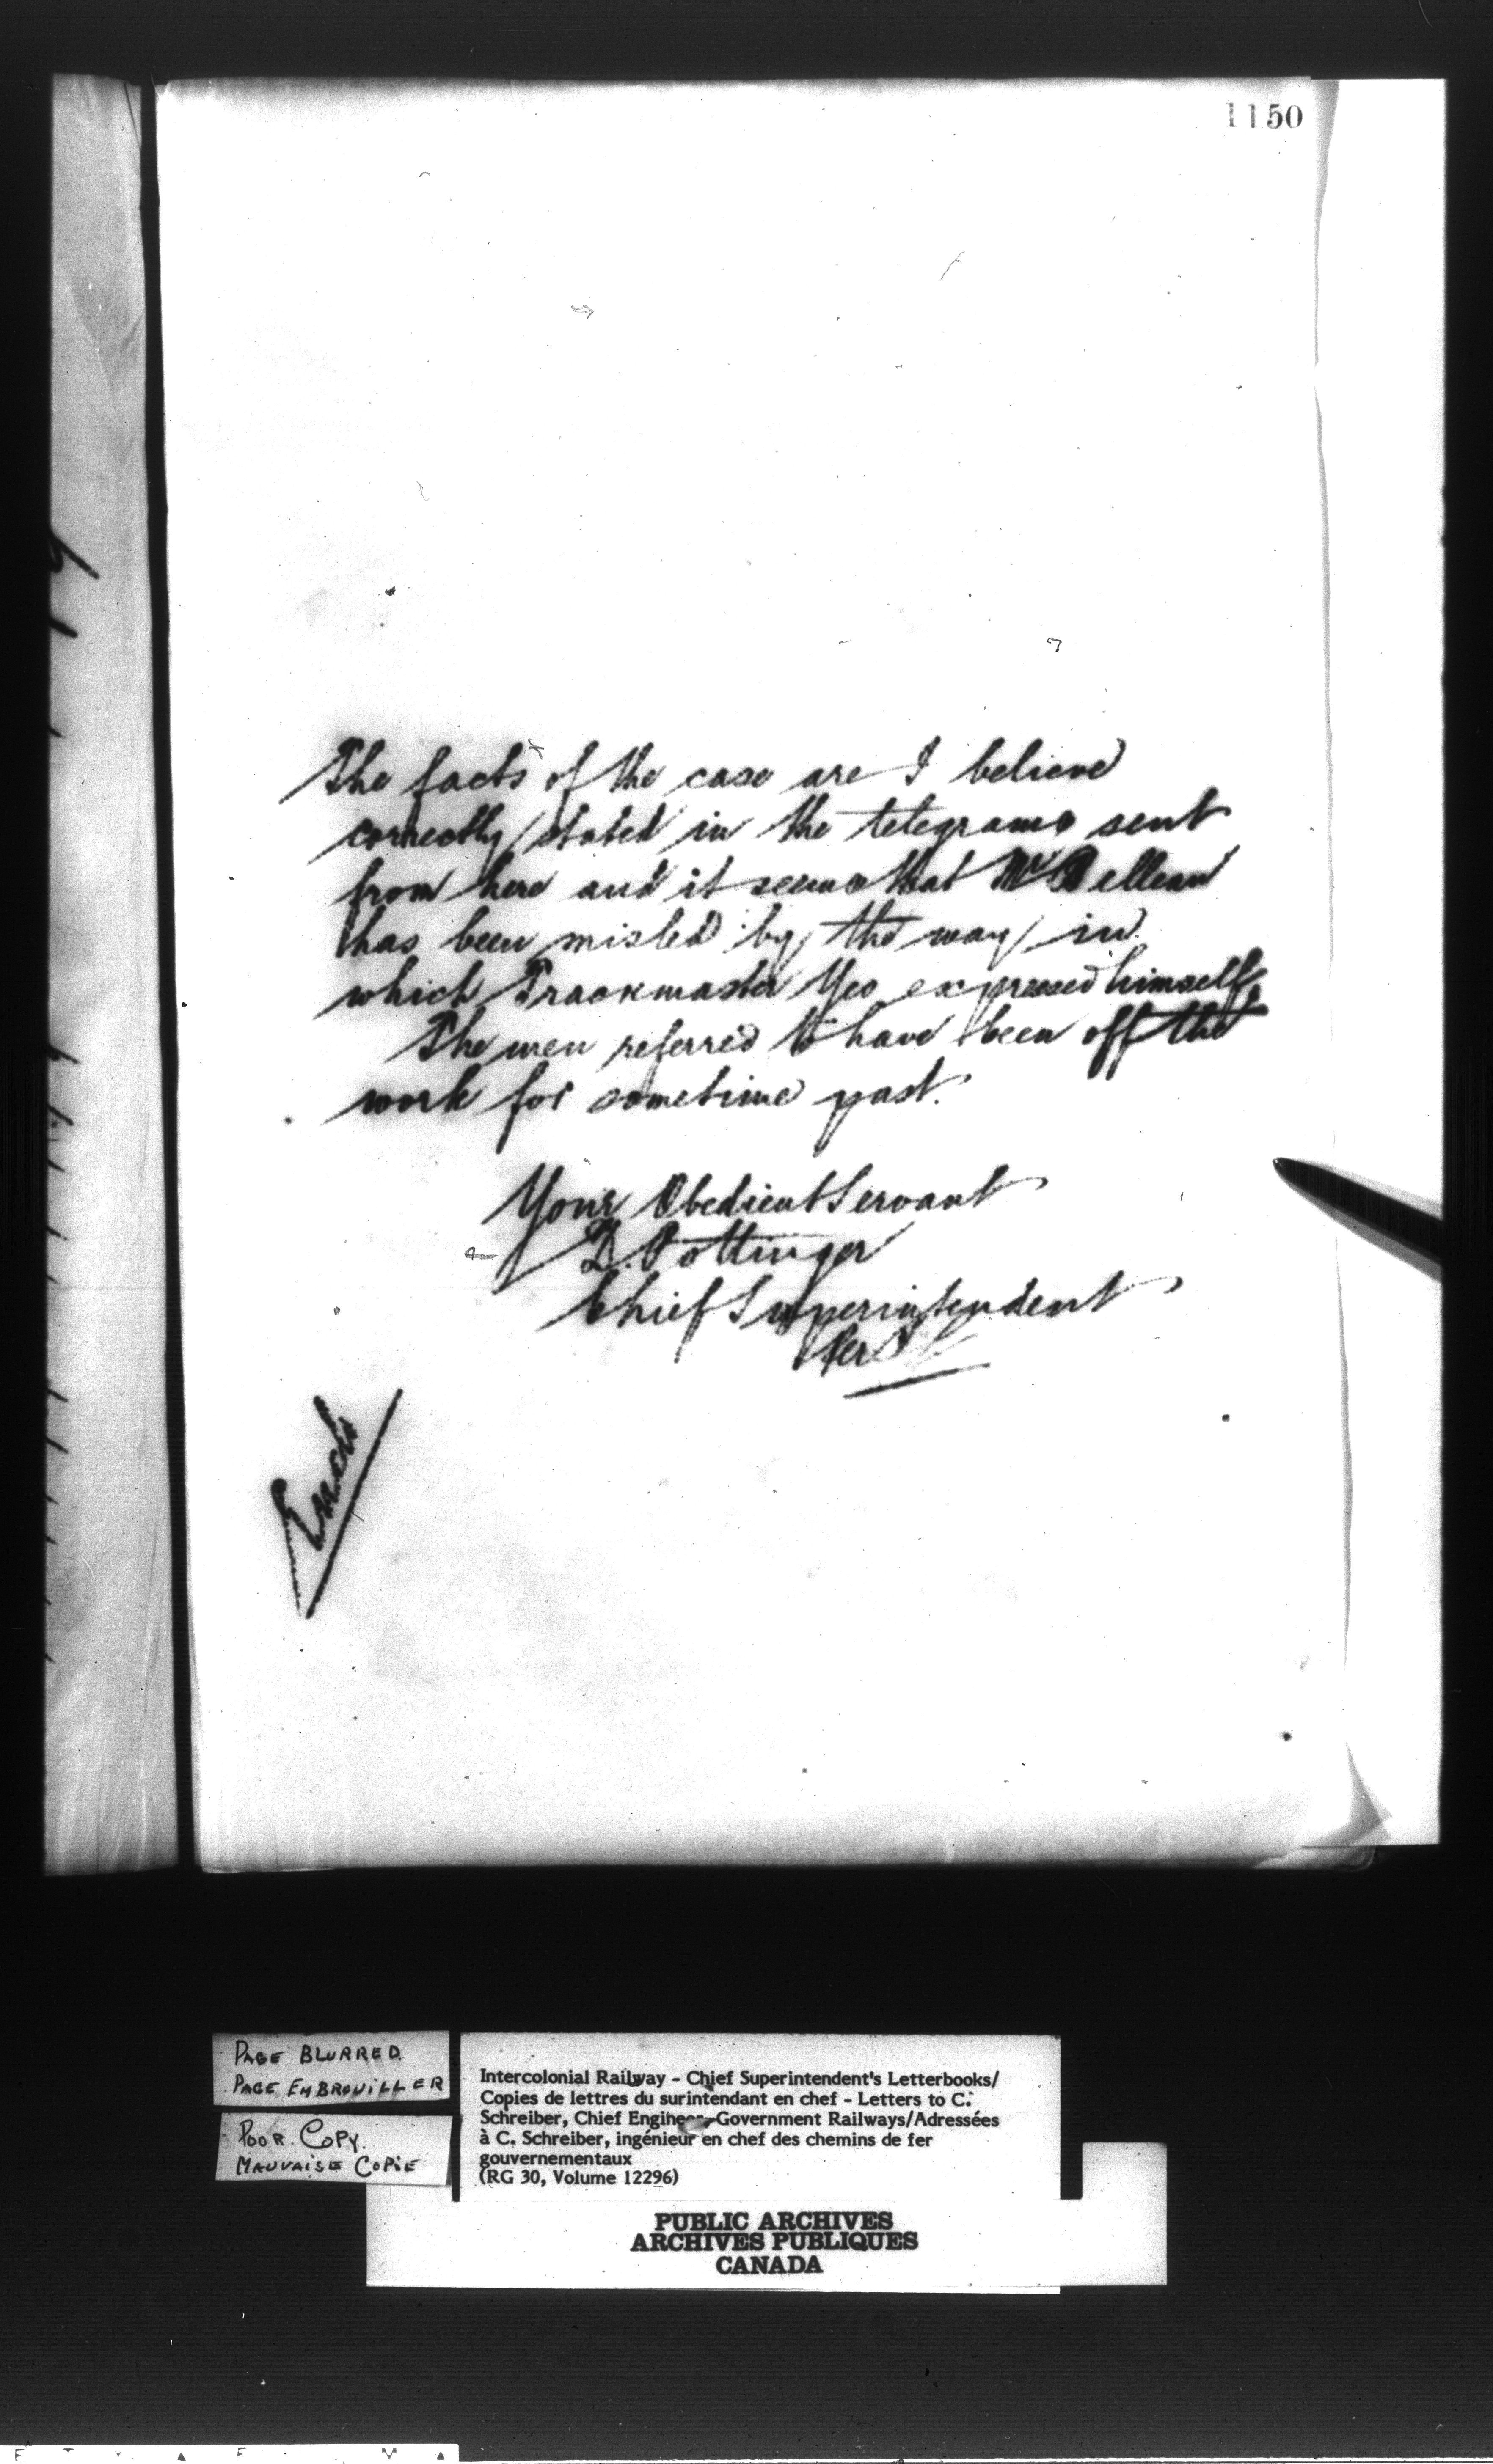 1150
The facts of the case are I believe
correctly stated in the telegrams sent
from here and it seems that Mr Belleau
has been misled by the way in
which Trackmaster Yeo expressed himself.
The men referred to have been off the
work for sometime past.
Your Obedient Servant
D. Pottinger
Chief Superintendent
Per
PAGE BLURRED.
PAGE EMBROUILLER
POOR COPY.
MAUVAISE COPIE
Intercolonial Railway - Chief Superintendent's Letterbooks/
Copies de lettres du surintendant en chef - Letters to C.
Schreiber, Chief Engineer-Government Railways/Adressées
à C. Schreiber, ingénieur en chef des chemins de fer
gouvernementaux
(RG 30, Volume 12296)
PUBLIC ARCHIVES
ARCHIVES PUBLIQUES
CANADA